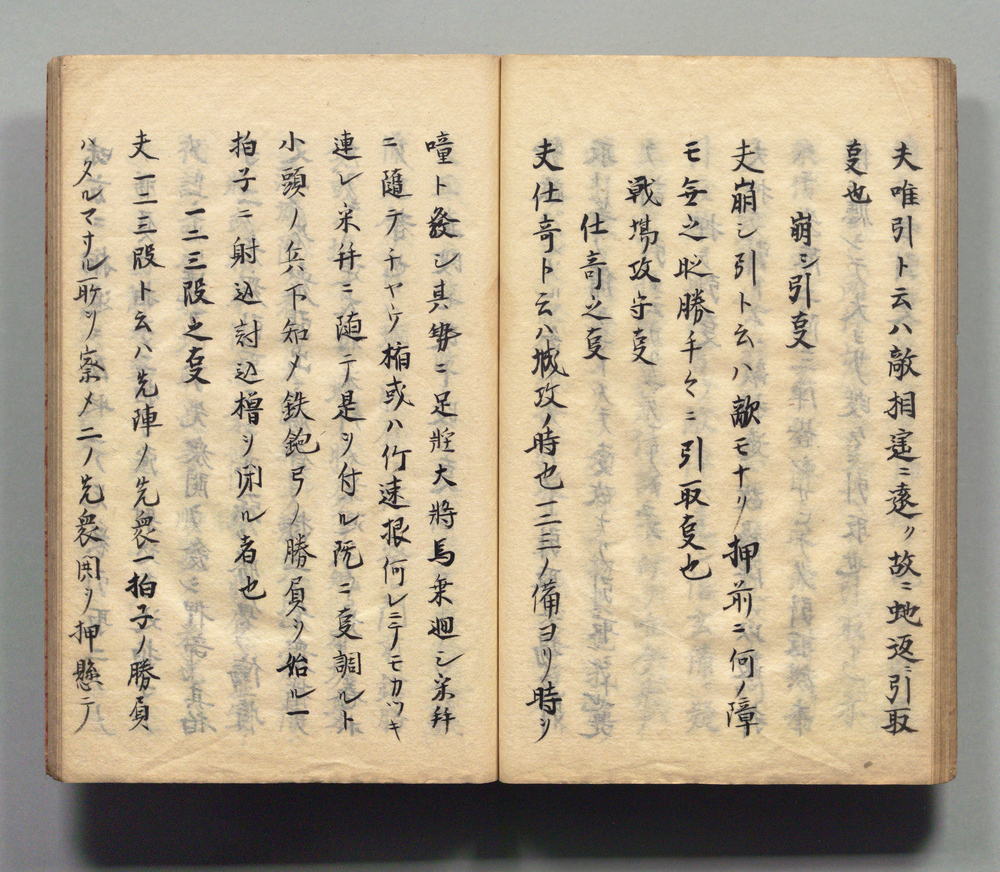 夫唯引ト云ハ敵相遙ニ遠ク故ニ虵返ニ引取
㕝也
崩シ引㕝
夫崩シ引ト云ハ敵モナク押前ニ何ノ障
モ無之時勝手々々ニ引取㕝也
戦場攻守㕝
仕寄之㕝
夫仕寄ト云ハ城攻ノ時也一二三ノ備ヨリ時ヲ
噇ト發シ其勢ニ足並大將馬乗廻シ采幷
ニ隨テチヤウケ楯或ハ竹速根何レニテモカツキ
連レ采幷ニ随テ是ヲ付ル既ニ㕝調ルト
小頭ノ兵下知メ鉄鉋弓ノ勝負ヲ始ル一
拍子ニ射込討込櫓ヲ閉ル者也
一二三段之㕝
夫一二三段ト云ハ先陣ノ先衆一拍子ノ勝負
ハタルマサル所ヲ察メ二ノ先衆閧ヲ押懸テ